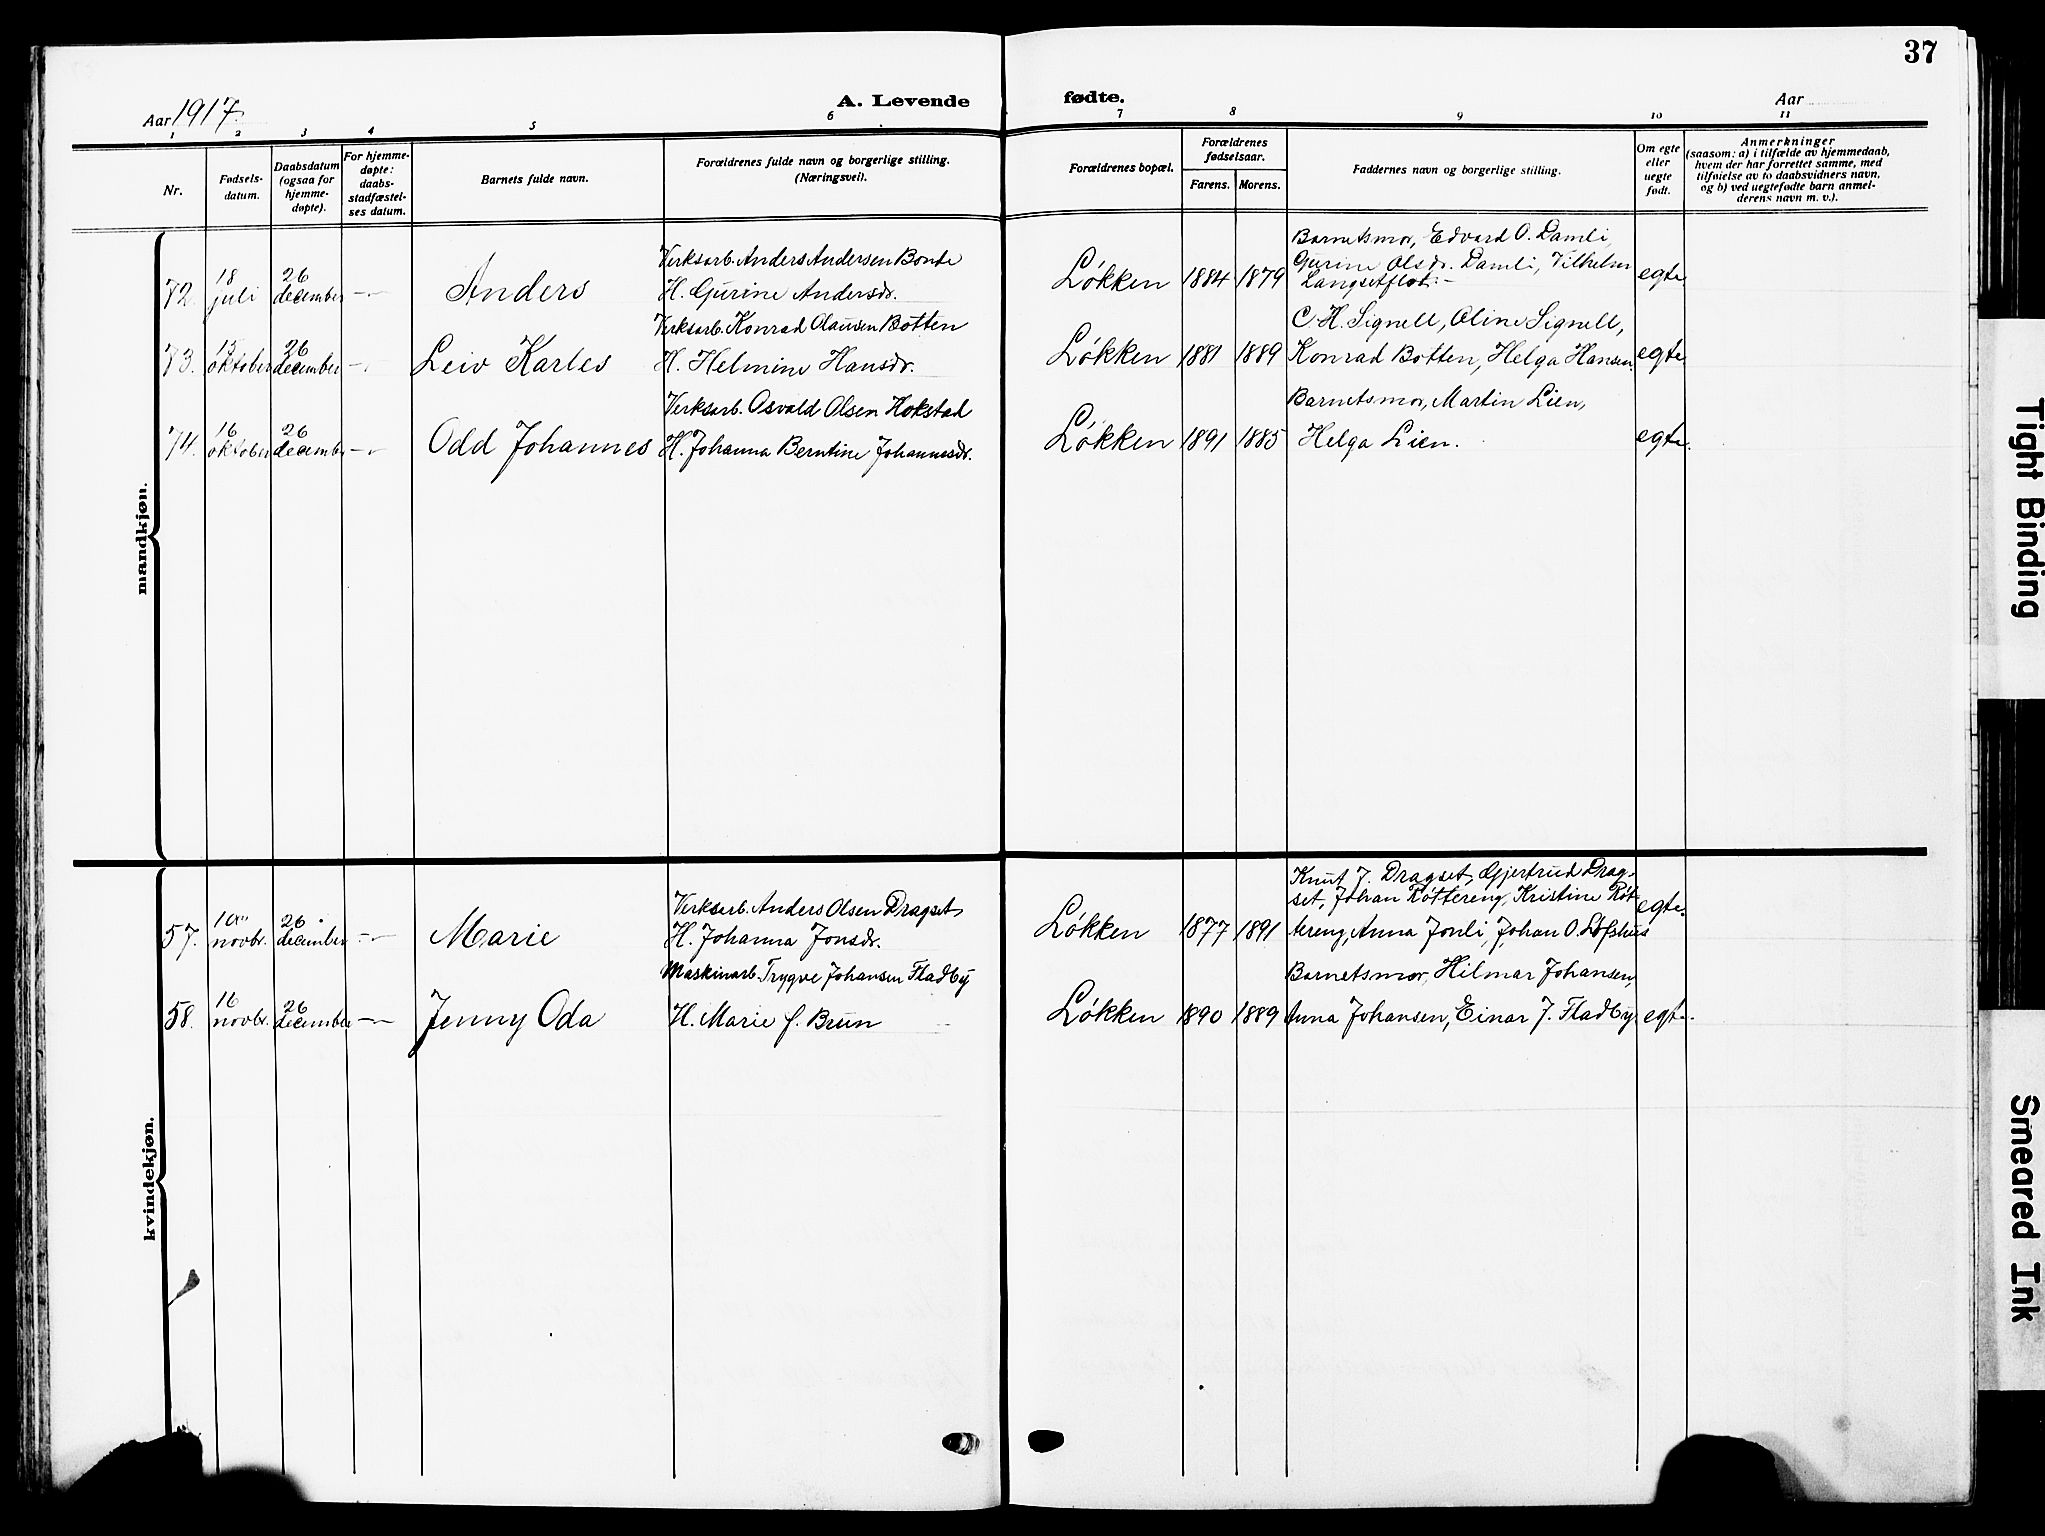 37
Aar 1917.
A. Levende
fødte.
Aar
1 2 3 4 5 6 7 8 9 10 11
Nr.
Fødsels-
datum.
Daabsdatum
(ogsaa for
hjemme-
døpte).
For hjemme-
døpte:
daabs-
stadfæstel-
ses datum.
Barnets fulde navn.
Forældrenes fulde navn og borgerlige stilling.
(Næringsvei).
Forældrenes bopæl.
Forældrenes
fødselsaar.
Farens. Morens.
Faddernes navn og borgerlige stilling.
Om egte
eller
uegte
født.
Anmerkninger
(saasom: a) i tilfælde av hjemmedaab,
hvem der har forrettet samme, med
tilføielse av to daabsvidners navn,
og b) ved uegtefødte barn anmel-
derens navn m. v.).
mandkjøn.
72.
18
juli
26
december
Anders
Verksarb. Anders Andersen Bonte
H. Gurine Andersdr.
Løkken 1884 1879
Barnetsmor, Edvard O. Damli,
Gurine Olsdr. Damli, Vilhelm
Langsetfløt.
egte.
73.
15
oktober
26
december
Leiv Karles
Verksarb. Konrad Olausen Botten
H. Helmine Hansdr.
Løkken 1881 1889
C. H. Signell, Oline Signell,
Konrad Botten, Helga Hansen
egte.
74.
16
oktober
26
december
Odd Johannes
Verksarb. Osvald Olsen Hokstad
H. Johanna Berntine Johannesdr.
Løkken 1891 1885
Barnetsmor, Martin Lien,
Helga Lien.
egte.
kvindekjøn.
57.
10
novbr.
26
december
Marie
Verksarb. Anders Olsen Dragset
H. Johanna Jonsdr.
Løkken 1877 1891
Knut J. Dragset, Gjertrud Drag-
set, Johan Røttereng, Kristine Røt-
tereng, Anna Jonli, Johan O. Lofshus
egte.
58.
16
novbr.
26
december
Jenny Oda
Maskinarb. Trygve Johansen Fladby
H. Marie f. Brun
Løkken 1890 1889
Barnetsmor, Hilmar Johansen,
Anna Johansen, Einar J. Fladby
egte.
Tight Binding
Smeared Ink